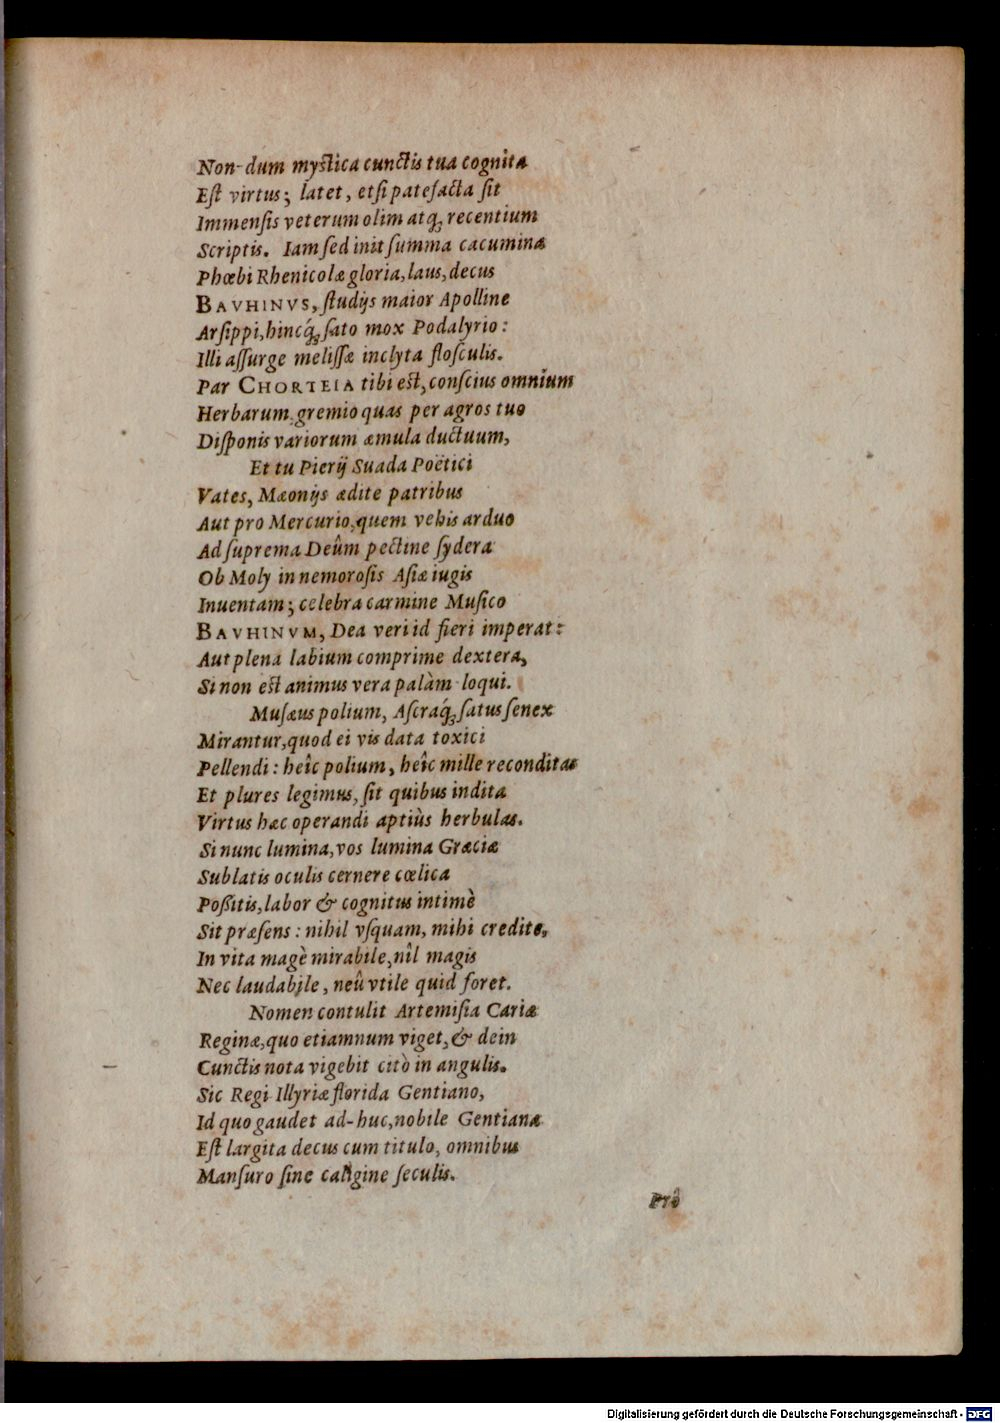 Non-dum myſtica cunctis tua cognita
Eſt virtus; latet, etſi patefacta ſit
Immenſis veterum olim atq́; recentium
Scriptis. Iam ſed init ſumma cacumina
Phœbi Rhenicolæ gloria, laus, decus
BAVHINVS, ſtudijs maior Apolline
Arſippi, hincq́; ſato mox Podalyrio:
Illi aſſurge meliſſæ inclyta floſculis.
Par CHORTEIA tibi eſt, conſcius omnium
Herbarum gremio quas per agros tuo
Diſponis variorum æmula ductuum,
Et tu Pierij Suada Poëtici
Vates, Mæonijs ædite patribus
Aut pro Mercurio, quem vehis arduo
Ad ſuprema Deûm pectine ſydera
Ob Moly in nemoroſis Aſiæ iugis
Inuentam; celebra carmine Muſico
BAVHINVM, Dea veri id fieri imperat:
Aut plena labium comprime dextera,
Si non eſt animus vera palàm loqui.
Muſæus polium, Aſcraq́; ſatus ſenex
Mirantur, quod ei vis data toxici
Pellendi: heîc polium, heîc mille reconditas
Et plures legimus, ſit quibus indita
Virtus hæc operandi aptiùs herbulas.
Si nunc lumina, vos lumina Græciæ
Sublatis oculis cernere cœlica
Poßitis, labor & cognitus intimè
Sit præſens: nihil vſquam, mihi credite,
In vita magè mirabile, nîl magis
Nec laudabile, neû vtile quid foret.
Nomen contulit Artemiſia Cariæ
Reginæ, quo etiamnum viget, & dein
Cunctis nota vigebit citò in angulis.
Sic Regi Illyriæ florida Gentiano,
Id quo gaudet ad-huc, nobile Gentianæ
Eſt largita decus cum titulo, omnibus
Manſuro ſine caligine ſeculis.
Prô
Digitalisierung gefördert durch die Deutsche Forschungsgemeinschaft - DFG